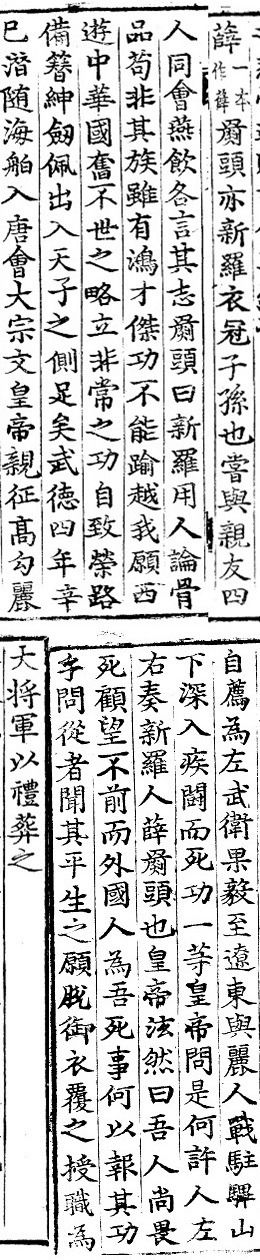 薛一本作薩罽頭亦新羅衣冠子孫也嘗與親友四
人同會燕飲各言其志罽頭曰新羅用人論骨
品苟非其族雖有鴻才傑功不能踰越我願西
遊中華國奮不世之略立非常之功自致榮路
備簪紳劒佩出入天子之側足矣武德四年辛
巳潜随海舶入唐會大宗文皇帝親征髙勾麗
自薦為左武衛果毅至遼東與麗人戰駐驆山
下深入疾闘而死功一等皇帝問是何許人左
右奏新羅人薛罽頭也皇帝泫然曰吾人尚畏
死顧望不前而外國人為吾死事何以報其功
乎問從者聞其平生之願脫御衣覆之授職為
大將軍以禮葬之